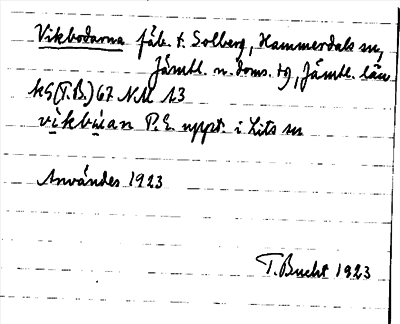 Vikbodarna fäb. t. Solberg, Hammerdals sn,
Jämtl. n. doms. tg, Jämtl. län
kG (T.B.) 67 NM 13
vikbúan P.E. uppt. i Lits sn
Användes 1923
T. Bucht 1923